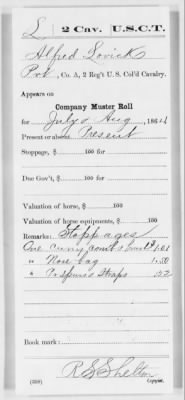 L 2 Cav. U.S.C.T.
Alfred Lovick
Pvt, Co. A, 2 Reg't U.S. Col'd Cavalry.
Appears on
Company Muster Roll
for July & Aug, 1864
Present or absent Present
Stoppage, $ 100 for
Due Gov't, $ 100 for
Valuation of horse, $ 100
Valuation of horse equipments, $ 100
Remarks: Stoppages
One curry comb & brush 1.01
" Nose bag 1.50
" Straps .52
Book mark:
R S Shelton
(358) Copyist.